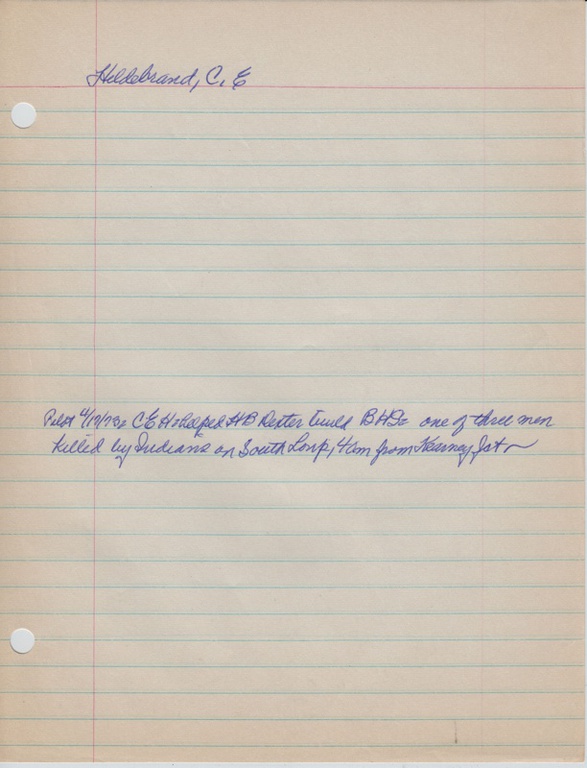 Hildebrand, C. E
4/17/73; C E H helped H B Dexter build B H G: one of three men
killed by Indians on South Loup, 40m from Kearney Jct